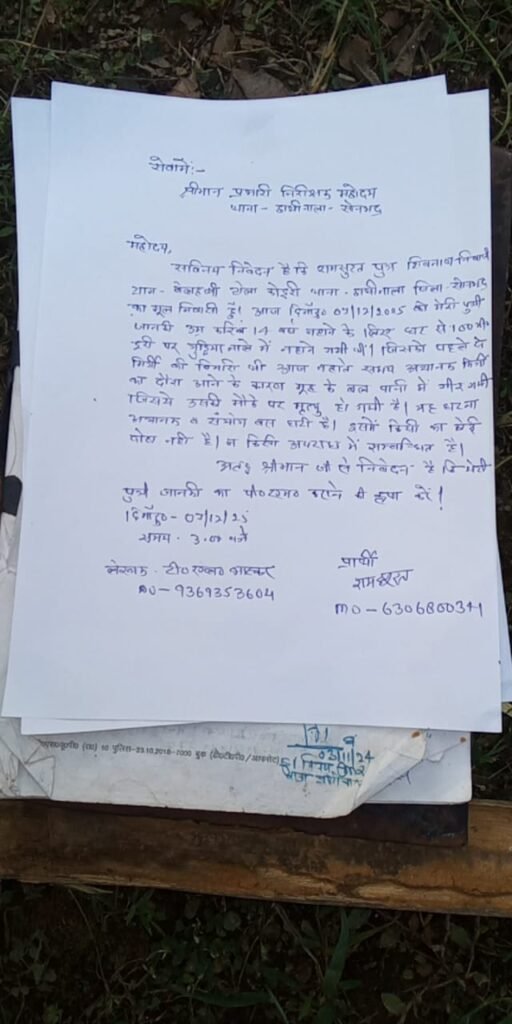 सेवामें:-
श्रीमान प्रभारी निरीक्षक महोदय
थाना - हाथीनाला - सोनभद्र
महोदय,
सविनय निवेदन है कि रामसुरत पुत्र शिवनाथ निवासी
ग्राम - टोला कोइरी थाना - हाथीनाला जिला - सोनभद्र
का मूल निवासी हूँ। आज दिनाँक 07/12/2025 को मेरी पुत्री
जानकी उम्र करिब 14 वर्ष नहाने के लिए घर से 100 मी०
दुरी पर नाले में नहाने गयी थी। जिसको पहले से
मिर्गी की बिमारी थी आज नहाते समय अचानक मिर्गी
का दौरा आने के कारण मुह के बल पानी में गीर गयी
जिससे उसकी मौके पर मृत्यु हो गयी है। यह घटना
अचानक व संयोग बस घटी है। इसमें किसी का कोई
दोष नहीं है। न किसी अपराध में सम्बन्धित है।
अतः श्रीमान जी से निवेदन है कि मेरी
पुत्री जानकी का पी०एम० कराने की कृपा करें!
दिनाँक - 07/12/25
समय - 3.00 बजे
लेखक - टी० भास्कर
mo - 9369353604
प्रार्थी
रामसुरत
mo - 6306800341
50 पुलिस-23.10.2018-7000 बुक
03/11/24